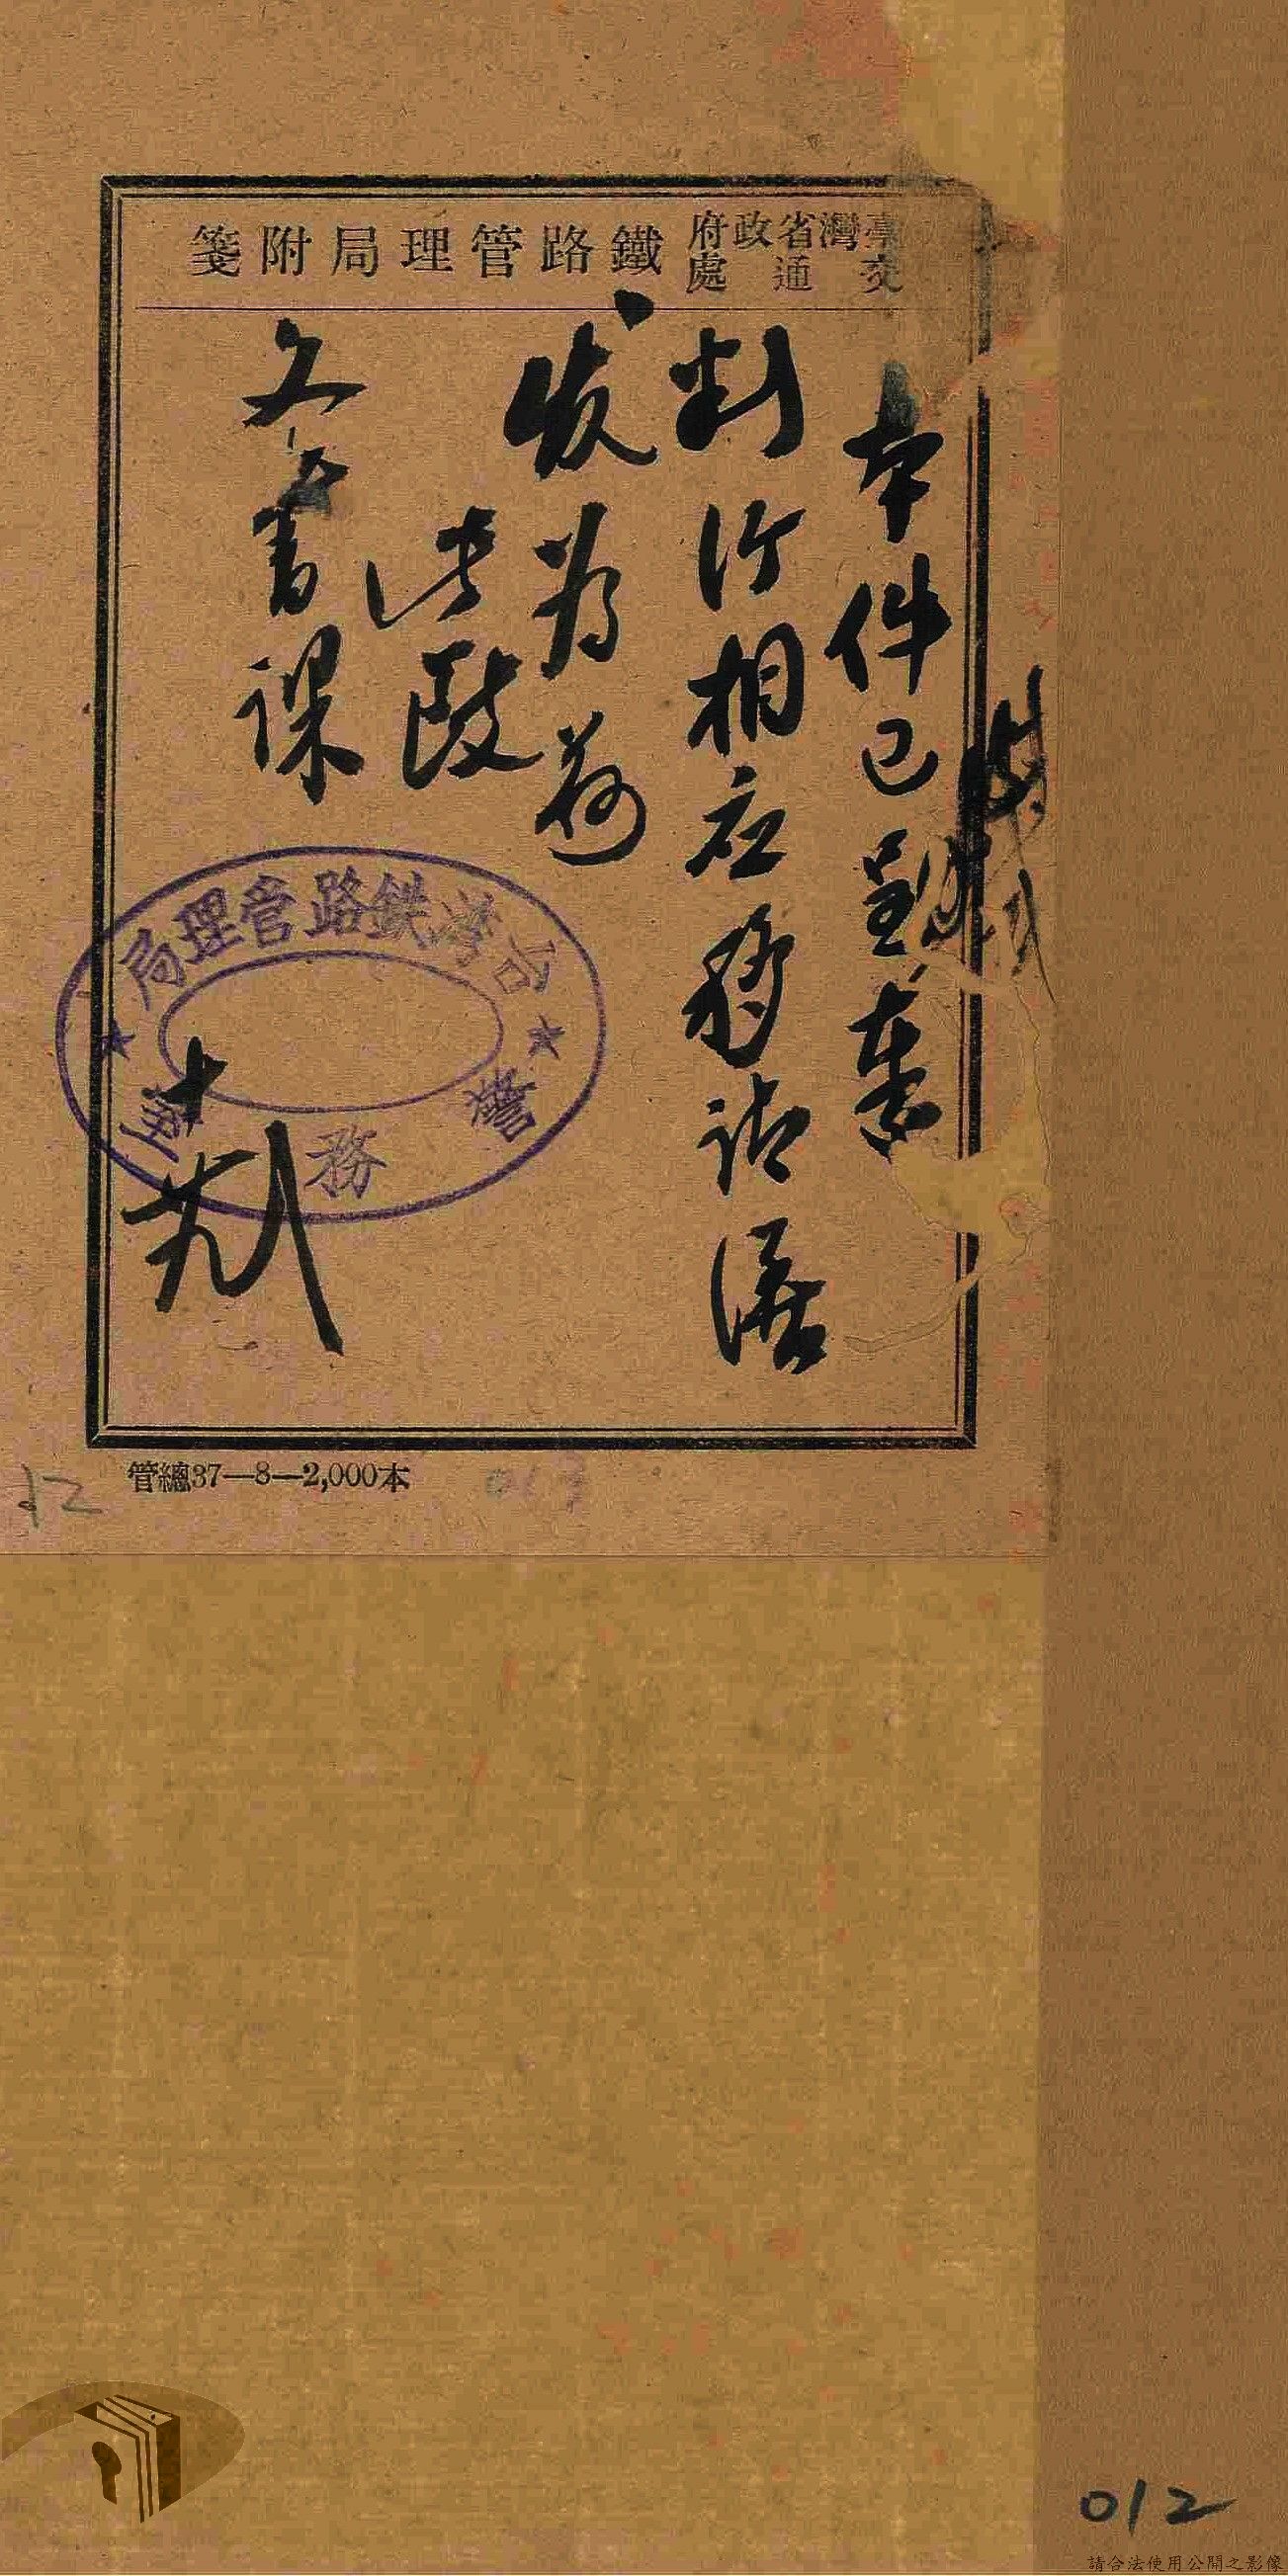 臺灣省政府交通處鐵路管理局附箋
本件已呈奉
判行相应移請繕
发为荷
此致
文書課
台灣鉄路管理局
警務室
十
管總37—8—2,000本
12
012
請合法使用公開之影像